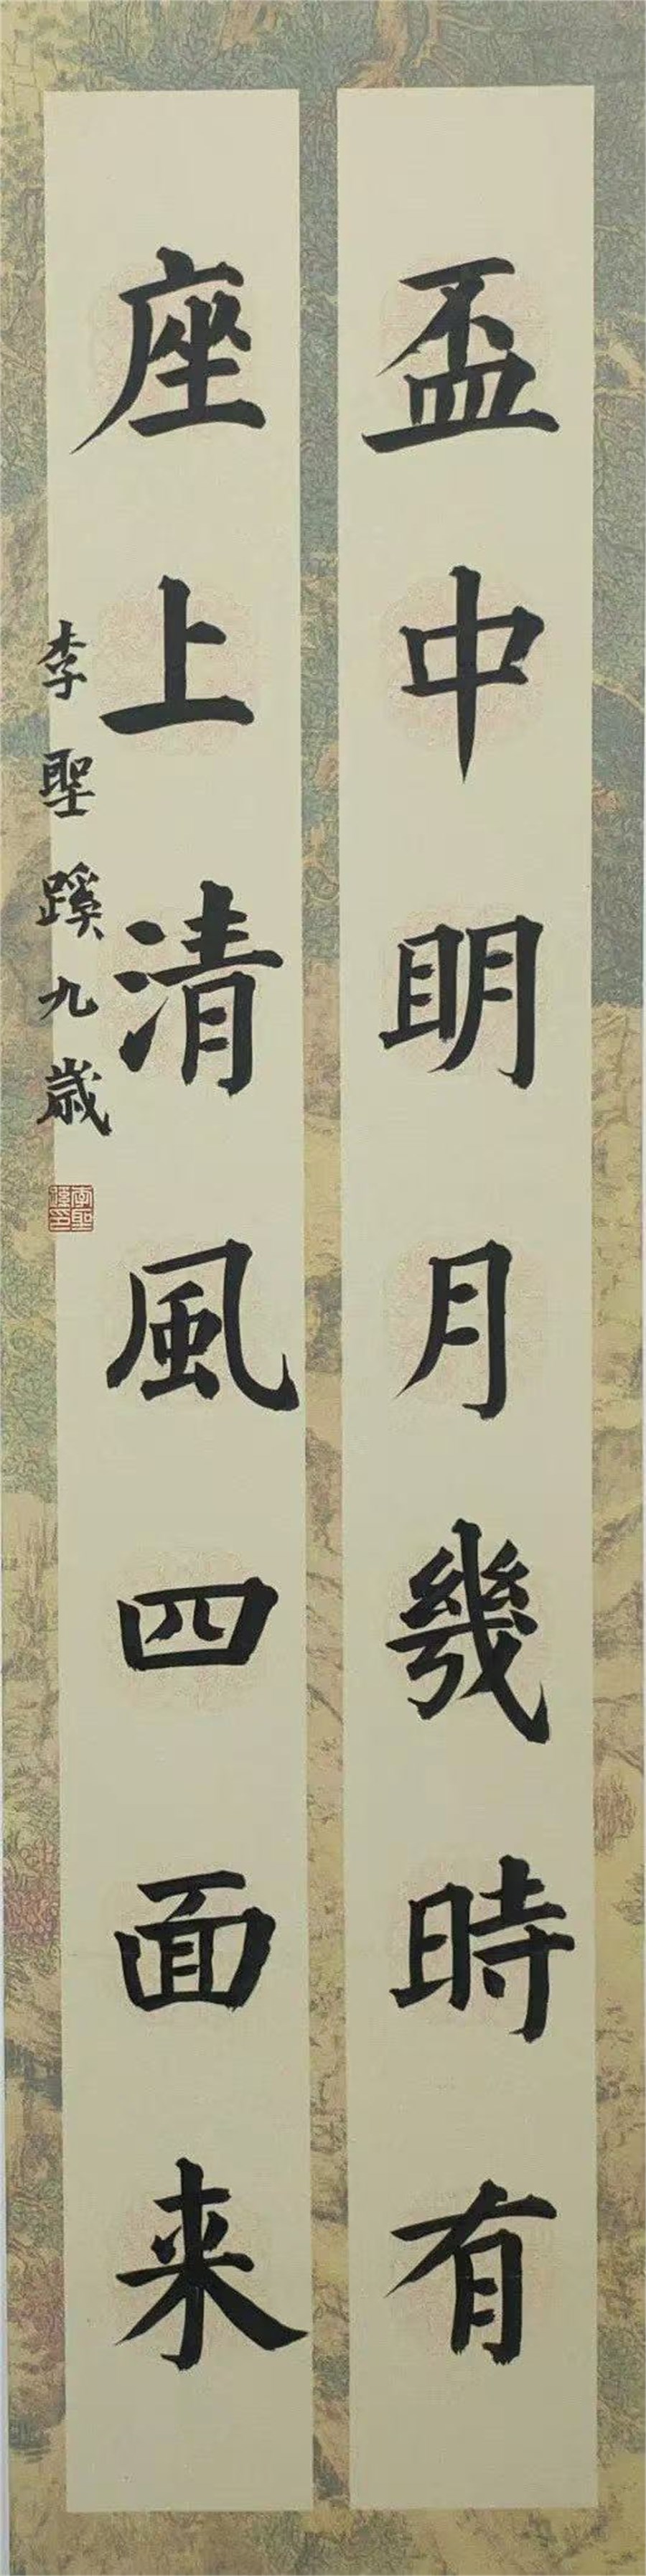 盃中明月幾時有
座上清風四面来
李聖蹊九歲